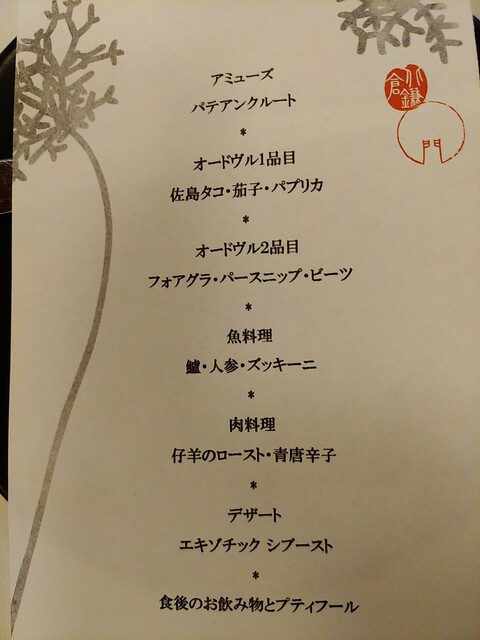 アミューズ
パテアンクルート
*
オードヴル1品目
佐島タコ・茄子・パプリカ
*
オードヴル2品目
フォアグラ・パースニップ・ビーツ
*
魚料理
鱸・人参・ズッキーニ
*
肉料理
仔羊のロースト・青唐辛子
*
デザート
エキゾチック シブースト
*
食後のお飲み物とプティフール
北鎌倉
門